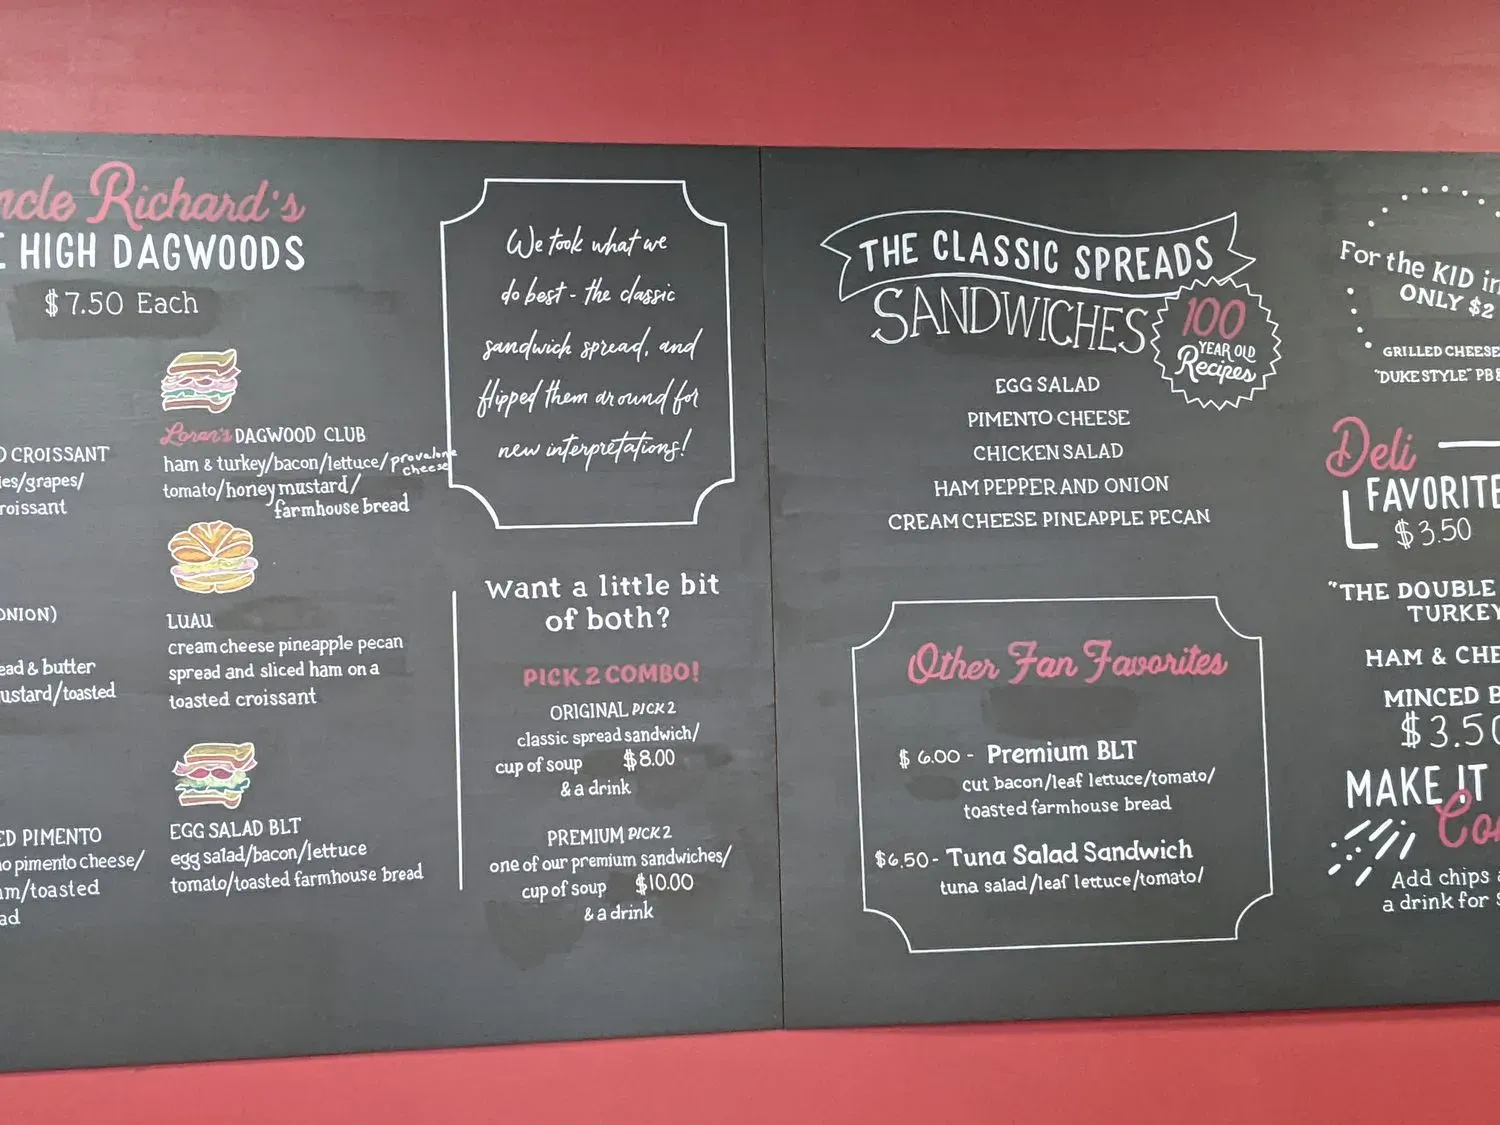 Richard's
HIGH DAGWOODS
$7.50 Each
CROISSANT
/grapes/
Loran's DAGWOOD CLUB
ham & turkey/bacon/lettuce/provalone
cheese
tomato/honey mustard/
farmhouse bread
LUAU
cream cheese pineapple pecan
spread and sliced ham on a
toasted croissant
& butter
/toasted
PIMENTO
pimento cheese/
/toasted
EGG SALAD BLT
egg salad/bacon/lettuce
tomato/toasted farmhouse bread
We took what we
do best - the classic
sandwich spread, and
flipped them around for
new interpretations!
Want a little bit
of both?
PICK 2 COMBO!
ORIGINAL PICK 2
classic spread sandwich/
cup of soup $8.00
& a drink
PREMIUM PICK 2
one of our premium sandwiches/
cup of soup $10.00
& a drink
THE CLASSIC SPREADS
SANDWICHES
100
YEAR OLD
Recipes
EGG SALAD
PIMENTO CHEESE
CHICKEN SALAD
HAM PEPPER AND ONION
CREAM CHEESE PINEAPPLE PECAN
Other Fan Favorites
$ 6.00 - Premium BLT
cut bacon/leaf lettuce/tomato/
toasted farmhouse bread
$6.50 - Tuna Salad Sandwich
tuna salad/leaf lettuce/tomato/
For the KID in
ONLY $2
GRILLED CHEESE
"DUKE STYLE" PB
Deli
FAVORITE
$3.50
"THE DOUBLE
TURKEY
HAM & CHE
MINCED B
$3.50
MAKE IT
Co
Add chips
a drink for